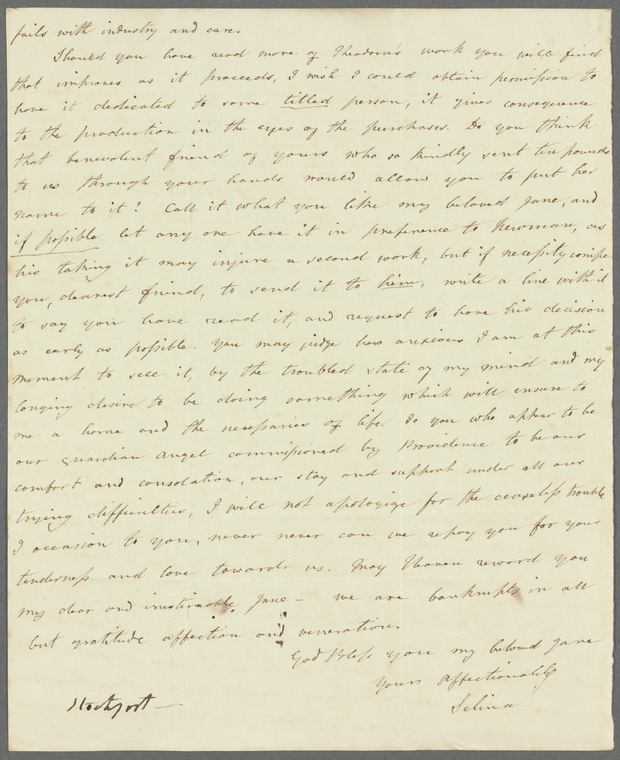 fails with industry and care.
Should you have read more of Theodora's work you will find
that improves as it proceeds, I wish I could obtain permission to
have it dedicated to some titled person, it gives consequence
to the production in the eyes of the purchases. Do you think
that benevolent friend of yours who so kindly sent ten pounds
to us through your hands would allow you to put her
name to it? Call it what you like my beloved Jane, and
if possible let any one have it in preference to Newman, as
his taking it may injure a second work, but if necessity compel
you, dearest friend, to send it to him, write a line with it
to say you have read it, and request to have his decision
as early as possible. You may judge how anxious I am at this
moment to sell it, by the troubled state of my mind and my
longing desire to be doing something which will ensure to
me a home and the necessaries of life. To you who appear to be
our guardian angel commissioned by Providence to be our
comfort and consolation, our stay and support under all our
trying difficulties, I will not apologize for the ceaseless trouble
I occasion to you, never never can we repay you for your
tenderness and love towards us. May Heaven reward you
my dear and inestimable Jane – we are bankrupts in all
but gratitude affection and veneration.
God Bless you my beloved Jane
Yours Affectionately
Selina
Stockport —